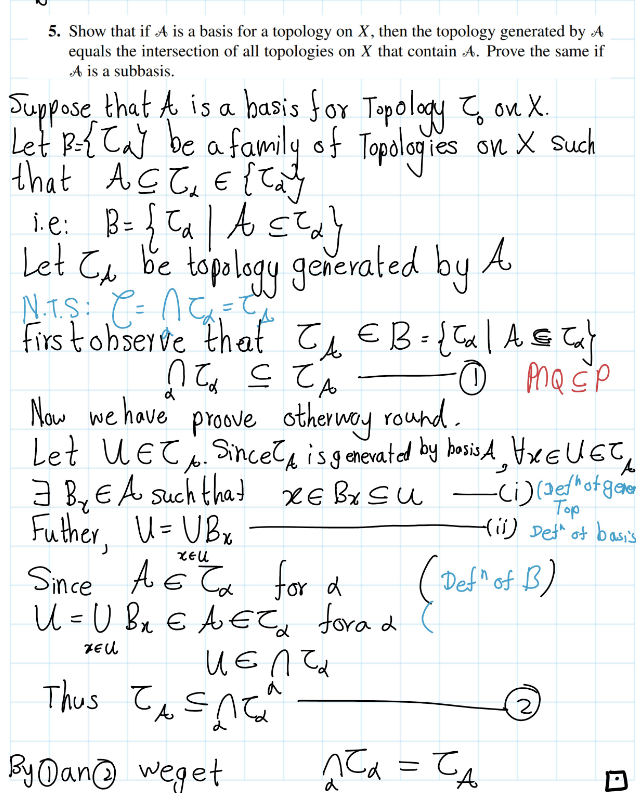 5. Show that if 𝒜 is a basis for a topology on X, then the topology generated by 𝒜
equals the intersection of all topologies on X that contain 𝒜. Prove the same if
𝒜 is a subbasis.
Suppose that A is a basis for Topology τ₀ on X.
Let B={τα} be a family of Topologies on X such
that A ⊆ τα ∈ {τα}
i.e: B = {τα | A ⊆ τα}
Let τA be topology generated by A
N.T.S: τ = ∩α τα = τA
first observe that τA ∈ B = {τα | A ⊆ τα}
∩α τα ⊆ τA — ① P∩Q ⊆ P
Now we have proove otherway round.
Let U ∈ τA. Since τA is generated by basis A, ∀x ∈ U ∈ τA
∃ Bx ∈ A such that x ∈ Bx ⊆ U — (i) (Defⁿ of gener
Top
Futher, U = ∪ Bx — (ii) Defⁿ of basis
x∈U
Since A ∈ τα for α (Defⁿ of B)
U = ∪ Bx ∈ A ∈ τα for α (
x∈U
U ∈ ∩α τα
Thus τA ⊆ ∩α τα — ②
By ① an ② we get ∩α τα = τA